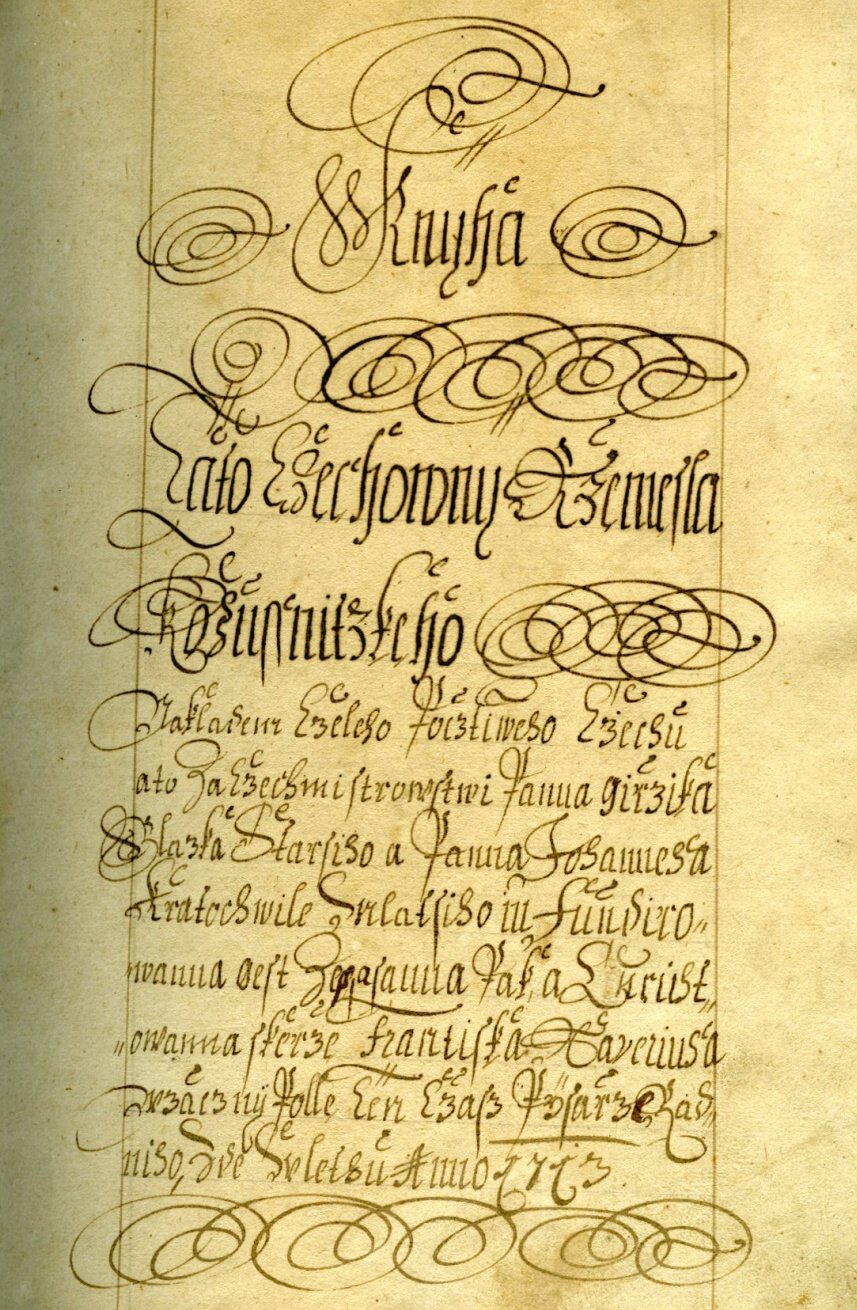 Knyha
Tato Czechowny Rzemesla
Kožussnitzkeho
Nakladem Czeleho Pocztiweho Czechu
ato Za Czechmistrowstwi Panna Girzika
Blazka Starsiho a Panna Johannesa
Kratochwile Mlatsiho iu Fundiro„
wanna gest Zepsanna Pak a
„owanna skerze Frantiska Xaveriusa
Polle Ten Czasz Pysarze Rad„
niho, Anno 1713